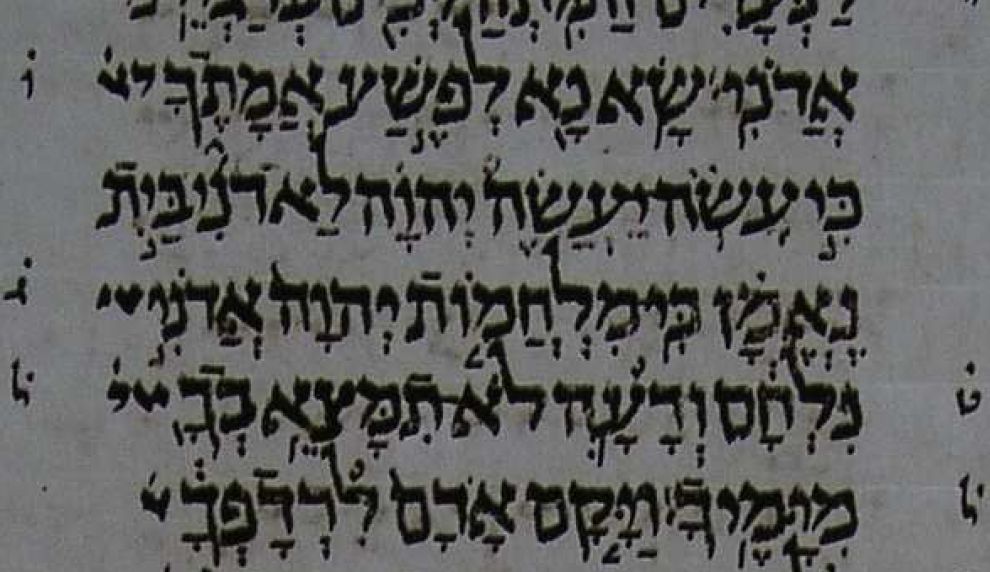 אֲדֹנִי׃ שָׂא נָא לְפֶשַׁע אֲמָתֶךָ
כִּי עָשֹׂה־יַעֲשֶׂה יְהוָה לַאדֹנִי בַּיִת
נֶאֱמָן כִּי־מִלְחֲמוֹת יְהוָה אֲדֹנִי
נִלְחָם וְרָעָה לֹא־תִמָּצֵא בְךָ
מִיָּמֶיךָ׃ וַיָּקָם אָדָם לִרְדָפְךָ